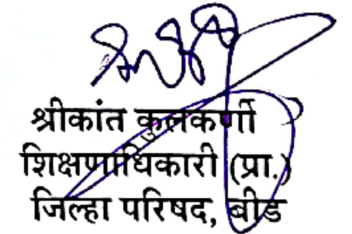 श्रीकांत कुलकर्णी
शिक्षणाधिकारी (प्रा.)
जिल्हा परिषद, बीड